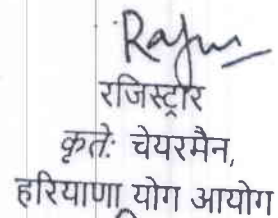 Rajn
रजिस्ट्रार
कृते: चेयरमैन,
हरियाणा योग आयोग